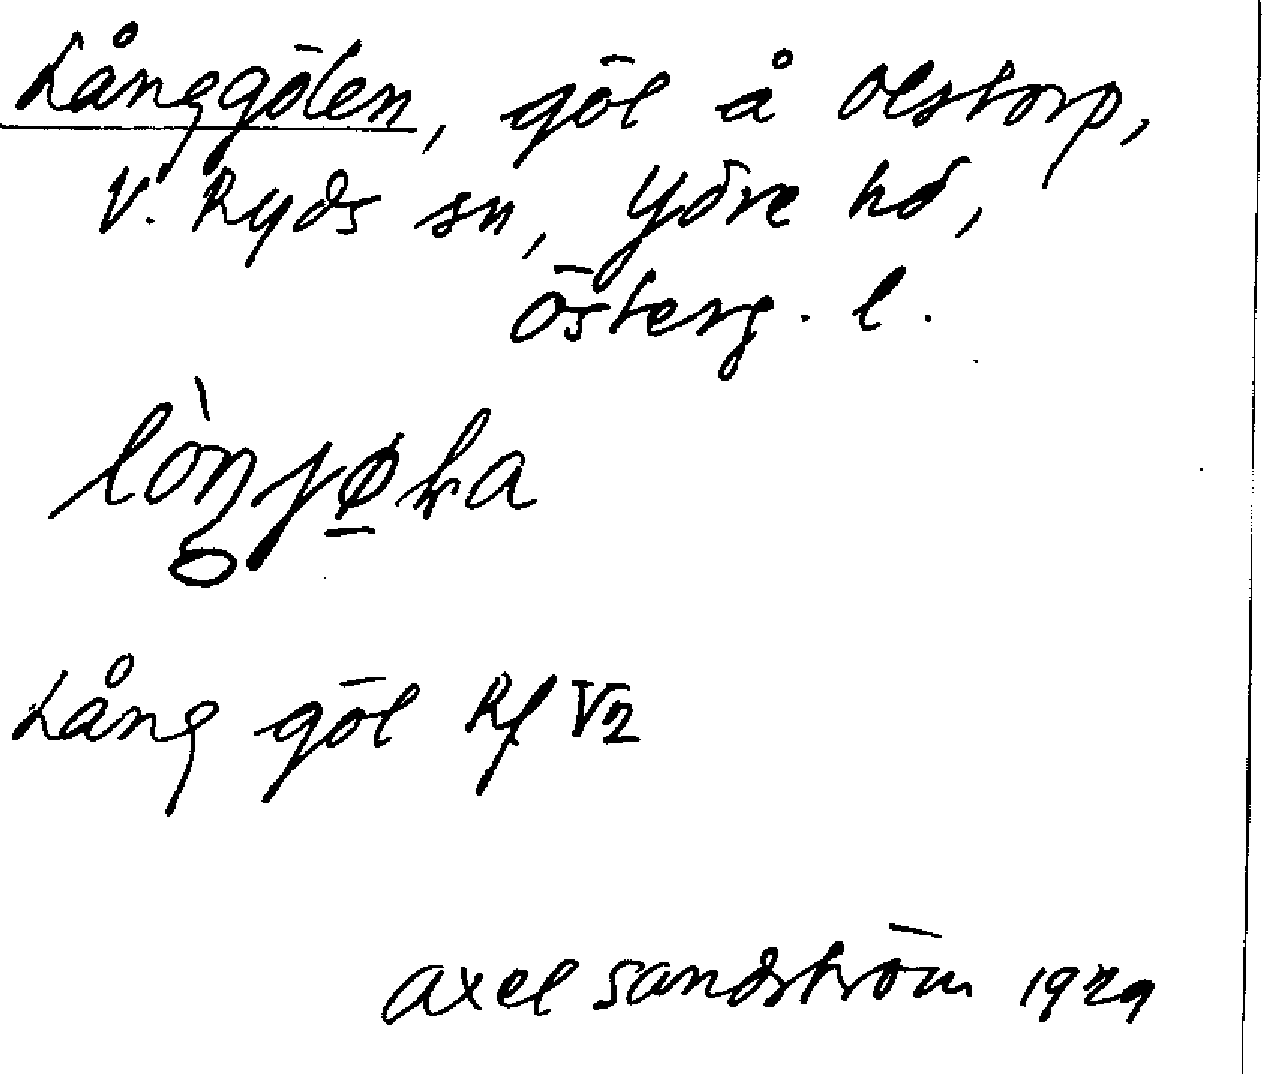 Långgölen, göl å Olstorp,
V. Ryds sn, Ydre hd,
Österg. l.
Lång göl Rf V2
Axel Sandström 1929